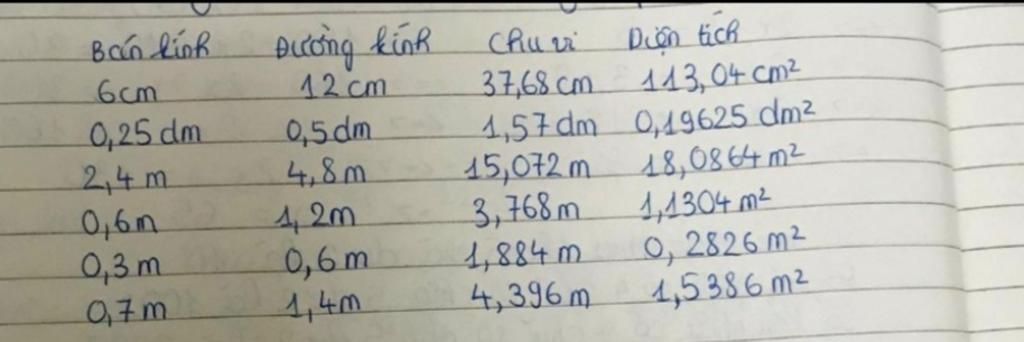 Bán kính Đường kính Chu vi Diện tích
6cm 12cm 37,68cm 113,04cm²
0,25dm 0,5dm 1,57dm 0,19625dm²
2,4m 4,8m 15,072m 18,0864m²
0,6m 1,2m 3,768m 1,1304m²
0,3m 0,6m 1,884m 0,2826m²
0,7m 1,4m 4,396m 1,5386m²